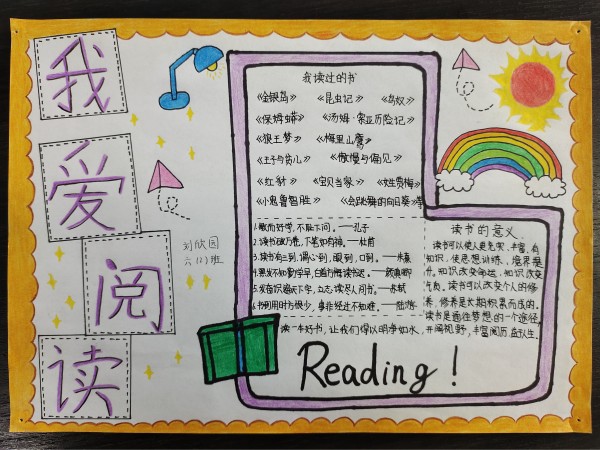 我爱阅读
刘欣园
六(1)班
我读过的书
《金银岛》 《昆虫记》 《鸟奴》
《保姆蟒》 《汤姆·索亚历险记》
《狼王梦》 《梅里山鹰》
《王子与贫儿》 《傲慢与偏见》
《红豺》 《宝贝当家》 《雌贵梅》
《小鬼鲁智胜》 《会跳舞的向日葵》
1.敏而好学,不耻下问。——孔子
2.读书破万卷,下笔如有神。——杜甫
3.读书有三到,谓心到,眼到,口到。——朱熹
4.黑发不知勤学早,白首方悔读书迟。——颜真卿
5.发奋识遍天下字,立志读尽人间书。——苏轼
6.书到用时方恨少,事非经过不知难。——陆游
读书的意义
读书可以使人更充实,丰富,有
知识,使思想训练,境界提
升,知识改变命运,知识改变
气质。读书可以改变个人的修
养,修养是长期积累而成的。
读书是通往梦想的一个途径,
读一本好书,让我们得以明净如水,开阔视野,丰富阅历,益
人生。
Reading!